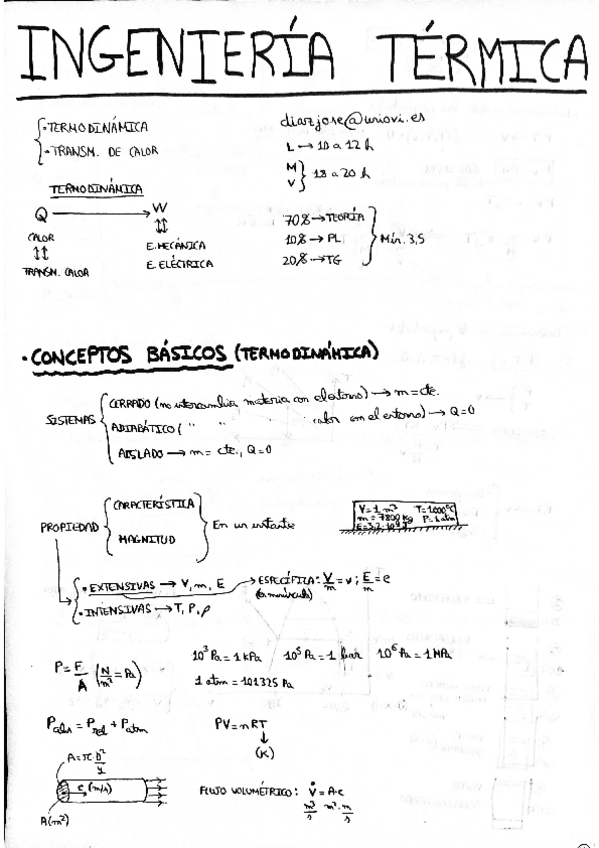 INGENIERÍA TÉRMICA
{ · TERMODINÁMICA
· TRANSM. DE CALOR
diazjose@uniovi.es
L → 10 a 12 h
M
V } 18 a 20 h
TERMODINÁMICA
Q → W
CALOR
⇕
TRANSM. CALOR
⇕
E. MECÁNICA
E. ELÉCTRICA
70% → TEORÍA
10% → PL
20% → TG
} Mín. 3,5
· CONCEPTOS BÁSICOS (TERMODINÁMICA)
SISTEMAS {
CERRADO (no intercambia materia con el entorno) → m = cte.
ADIABÁTICO ( " " " calor con el entorno) → Q = 0
AISLADO → m = cte., Q = 0
PROPIEDAD {
CARACTERÍSTICA
MAGNITUD
} En un instante
V = 1 m³ T = 1000 ºC
m = 7800 kg P = 1 atm
E = 3,2·10⁹ J
· EXTENSIVAS → V, m, E → ESPECÍFICA: V/m = v ; E/m = e
(en minúscula)
· INTENSIVAS → T, P, ρ
P = F/A (N/m² = Pa)
10³ Pa = 1 kPa 10⁵ Pa = 1 bar 10⁶ Pa = 1 MPa
1 atm = 101325 Pa
Pabs = Prel + Patm
PV = nRT
↓
(K)
A = π·D²/4
c (m/s)
A (m²)
FLUJO VOLUMÉTRICO: V̇ = A·c
m³/s m²·m/s